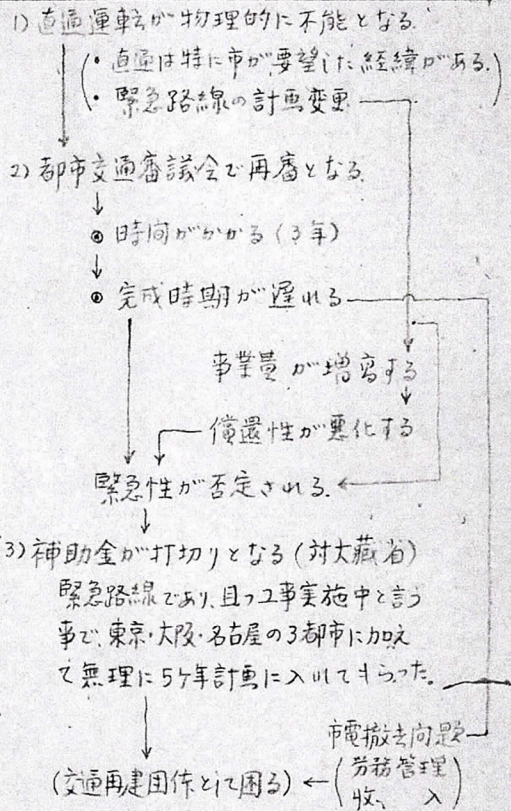 1) 直通運転が物理的に不能となる.
・直通は特に市が要望した経緯がある.
・緊急路線の計画変更
2) 都市交通審議会で再審となる
時間がかかる (3年)
完成時期が遅れる
事業費が増高する
償還性が悪化する
緊急性が否定される.
3) 補助金が打切りとなる (対大蔵省)
緊急路線であり、且つ工事実施中と言う
事で、東京・大阪・名古屋の3都市に加え
て無理に5ケ年計画に入れてもらった.
市電撤去問題
(交通再建団体として困る) ← (労務管理
収入)